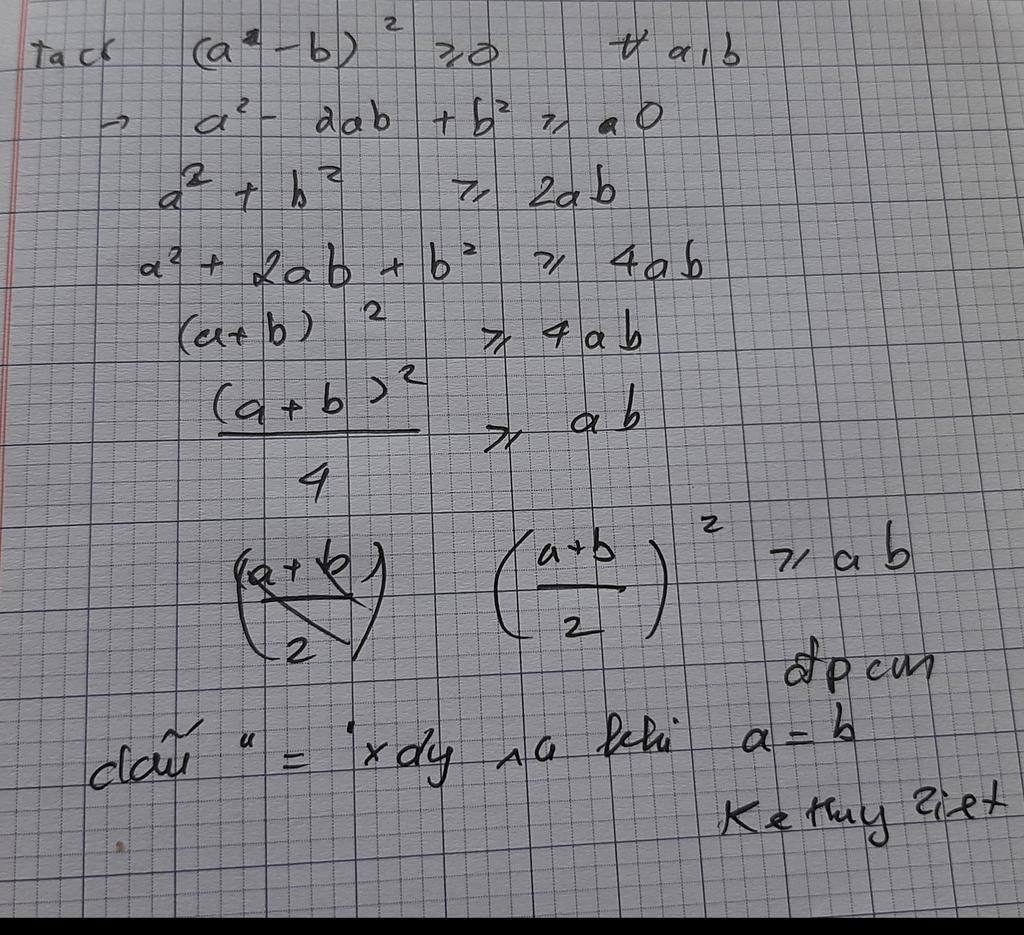 Ta có (a - b)² ≥ 0 ∀ a, b
→ a² - 2ab + b² ≥ 0
a² + b² ≥ 2ab
a² + 2ab + b² ≥ 4ab
(a+b)² ≥ 4ab
(a+b)²/4 ≥ ab
(a+b/2) (a+b/2)² ≥ ab
đpcm
dấu "=" xảy ra khi a = b